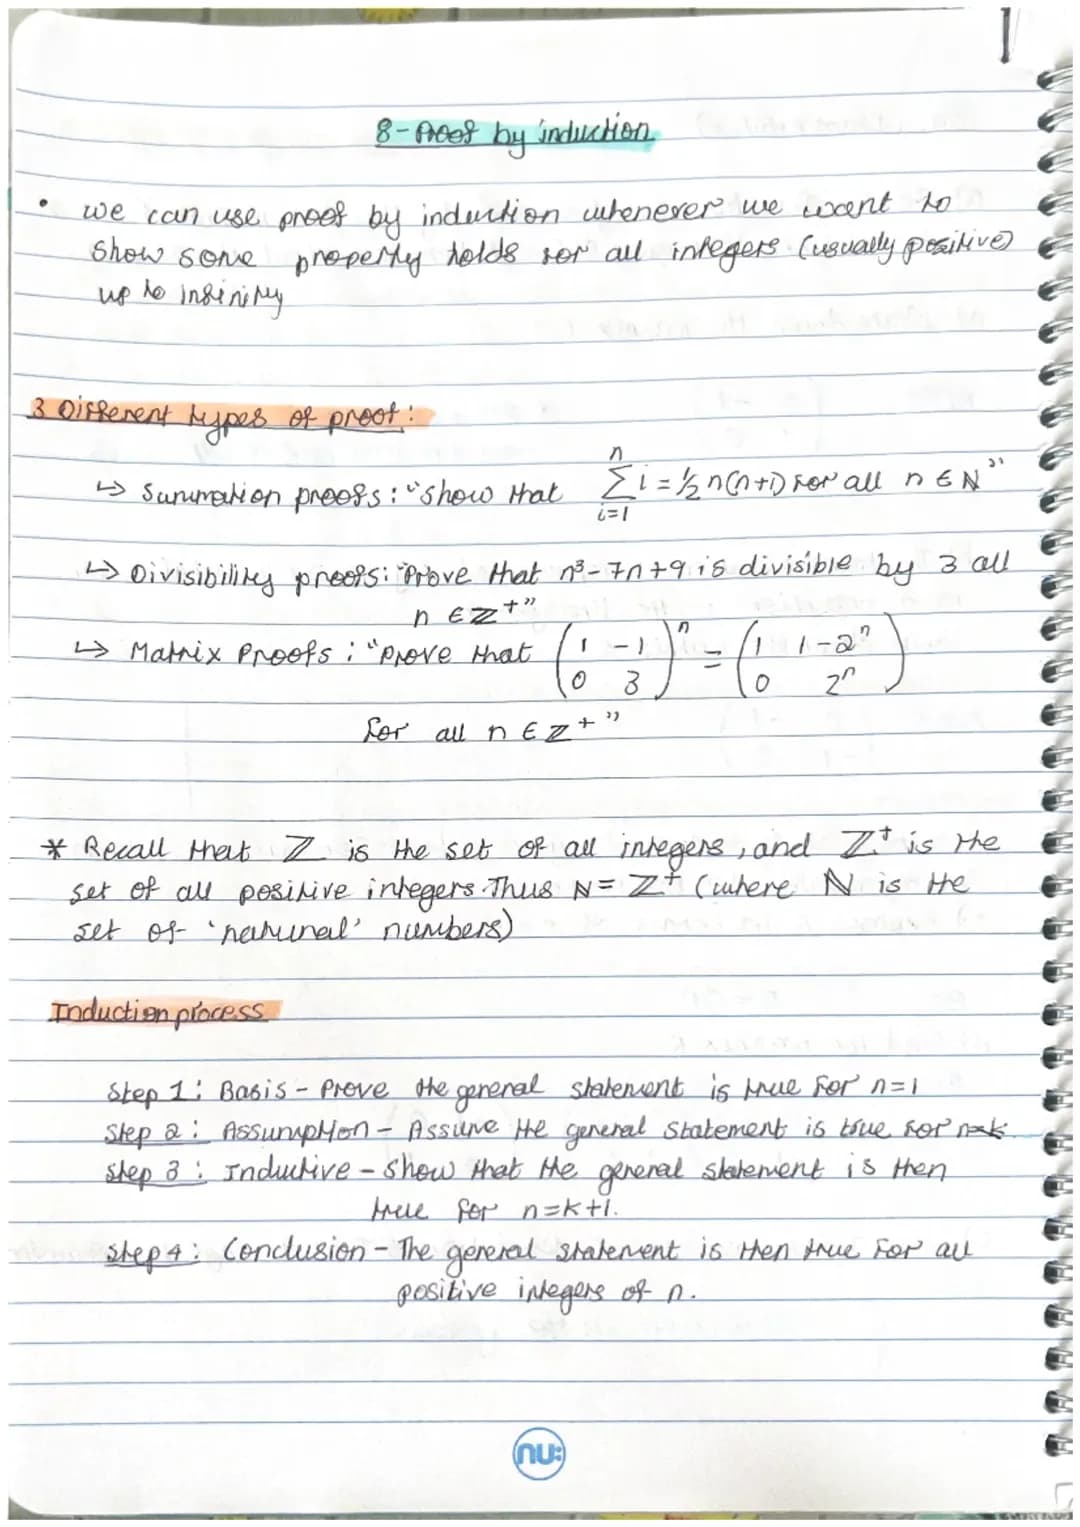 1
8-Proof by induction
• we can use proof by induction whenever we want to
show some property holds for all integers (usually positive)
up to infinity
3 Different types of proof:
↳ Summation proofs: "show that \sum_{i=1}^{n} i = ½ n(n+1) for all n ∈ N"
↳ Divisibility proofs: "Prove that n³-7n+9 is divisible by 3 all
n ∈ ℤ⁺"
↳ Matrix Proofs: "Prove that \begin{pmatrix} 1 & -1 \\ 0 & 3 \end{pmatrix}^n = \begin{pmatrix} 1 & 1-2^n \\ 0 & 2^n \end{pmatrix}
for all n ∈ ℤ⁺"
* Recall that ℤ is the set of all integers, and ℤ⁺ is the
set of all positive integers. Thus N = ℤ⁺ (where ℕ is the
set of 'natural' numbers)
Induction process
Step 1: Basis - Prove the general statement is true for n=1
Step 2: Assumption - Assume the general statement is true for n=k.
Step 3: Inductive - Show that the general statement is then
true for n=k+1.
Step 4: Conclusion - The general statement is then true for all
positive integers of n.
nu: